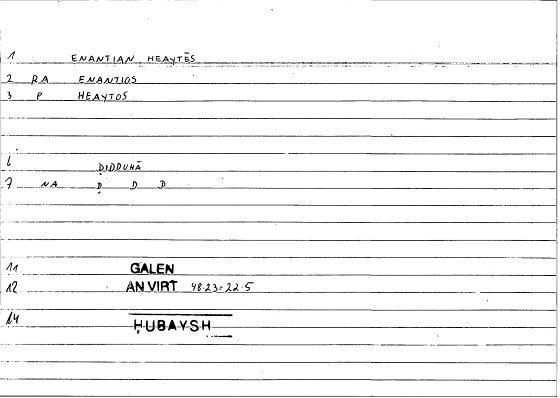 1 ENANTIAN HEAYTĒS
2 RA ENANTIOS
3 P HEAYTOS
6 ḌIDDUHĀ
7 NA Ḍ D D
11 GALEN
12 AN VIRT 48.23=22.5
14 ḤUBAYSH